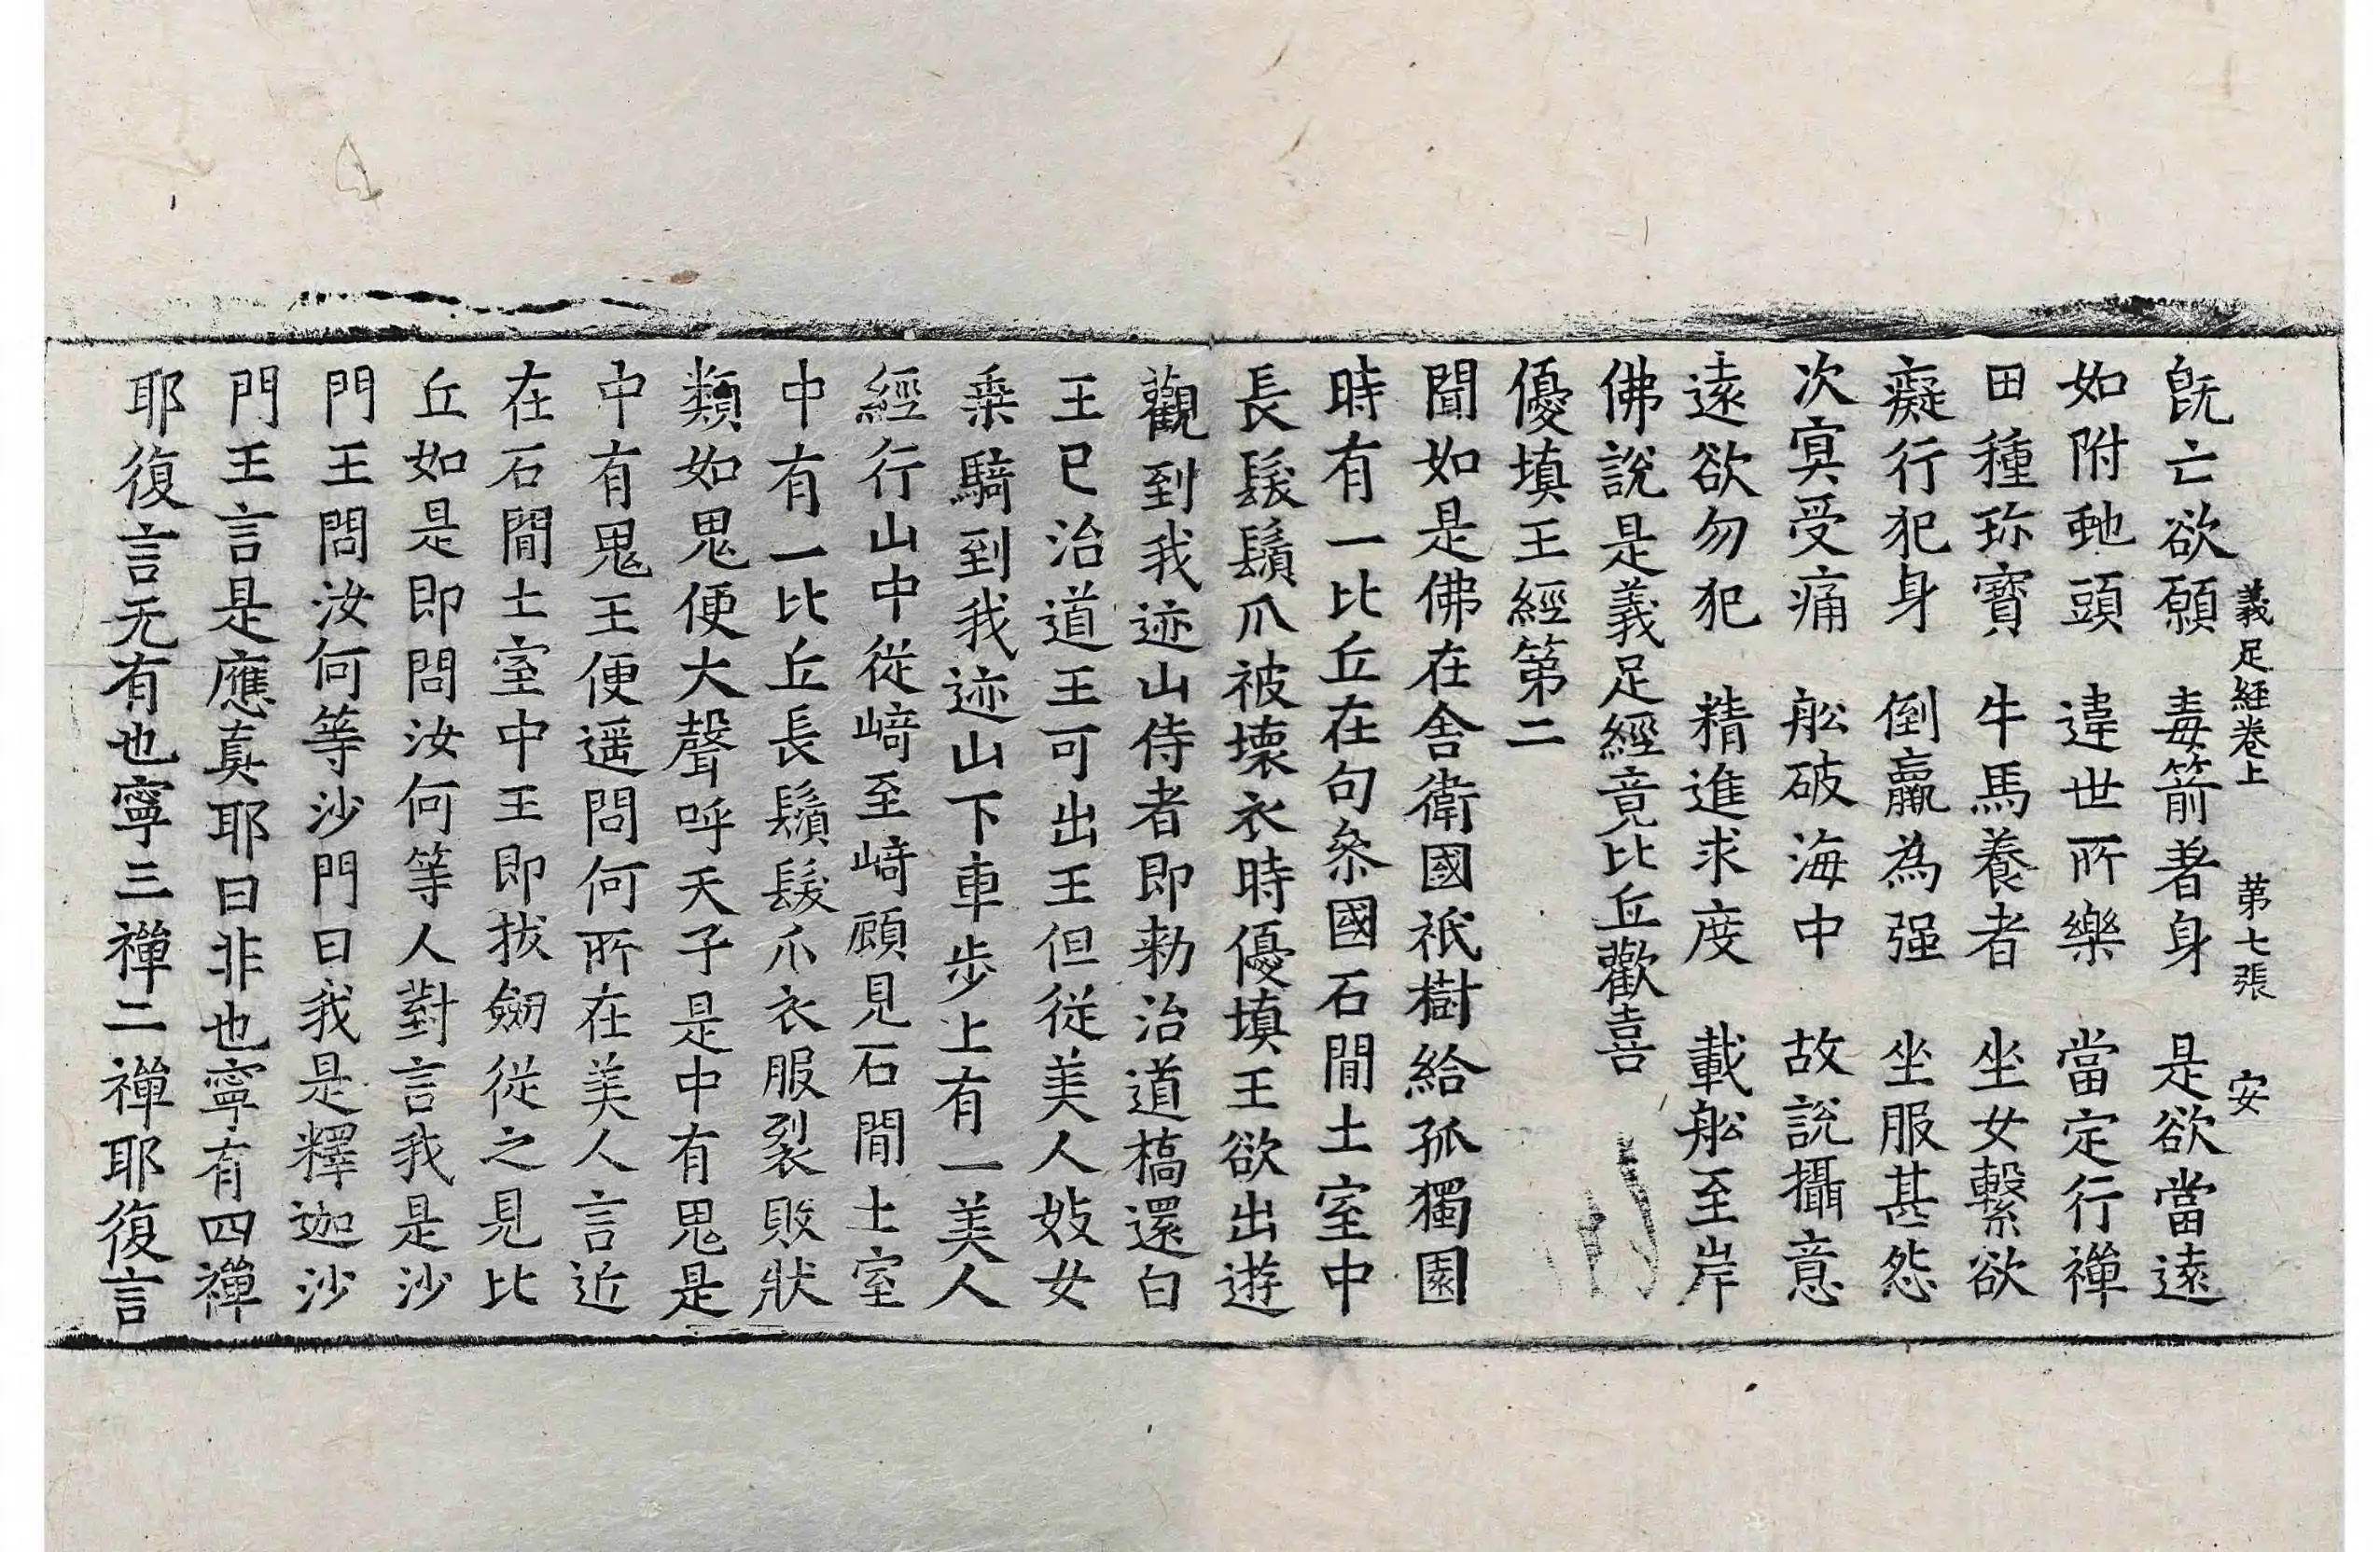 義足經卷上 第七張 安
旣亡欲願 毒箭著身 是欲當遠
如附虵頭 違世所樂 當定行禪
田種珎寶 牛馬養者 坐女繫欲
癡行犯身 倒羸為强 坐服甚怨
次㝠受痛 舩破海中 故說攝意
遠欲勿犯 精進求度 載舩至岸
佛說是義足經竟比丘歡喜
優填王經第二
聞如是佛在舍衛國祇樹給孤獨園
時有一比丘在句叅國石閒土室中
長髮鬚爪被壞衣時優填王欲出遊
觀到我迹山侍者即勑治道橋還白
王已治道王可出王但從美人妓女
乗騎到我迹山下車步上有一美人
經行山中從﨑至﨑顧見石閒土室
中有一比丘長鬚髮爪衣服裂敗狀
類如鬼便大聲呼天子是中有鬼是
中有鬼王便遥問何所在美人言近
在石閒土室中王即拔劒從之見比
丘如是即問汝何等人對言我是沙
門王問汝何等沙門曰我是釋迦沙
門王言是應真耶曰非也寧有四禪
耶復言无有也寧三禪二禪耶復言